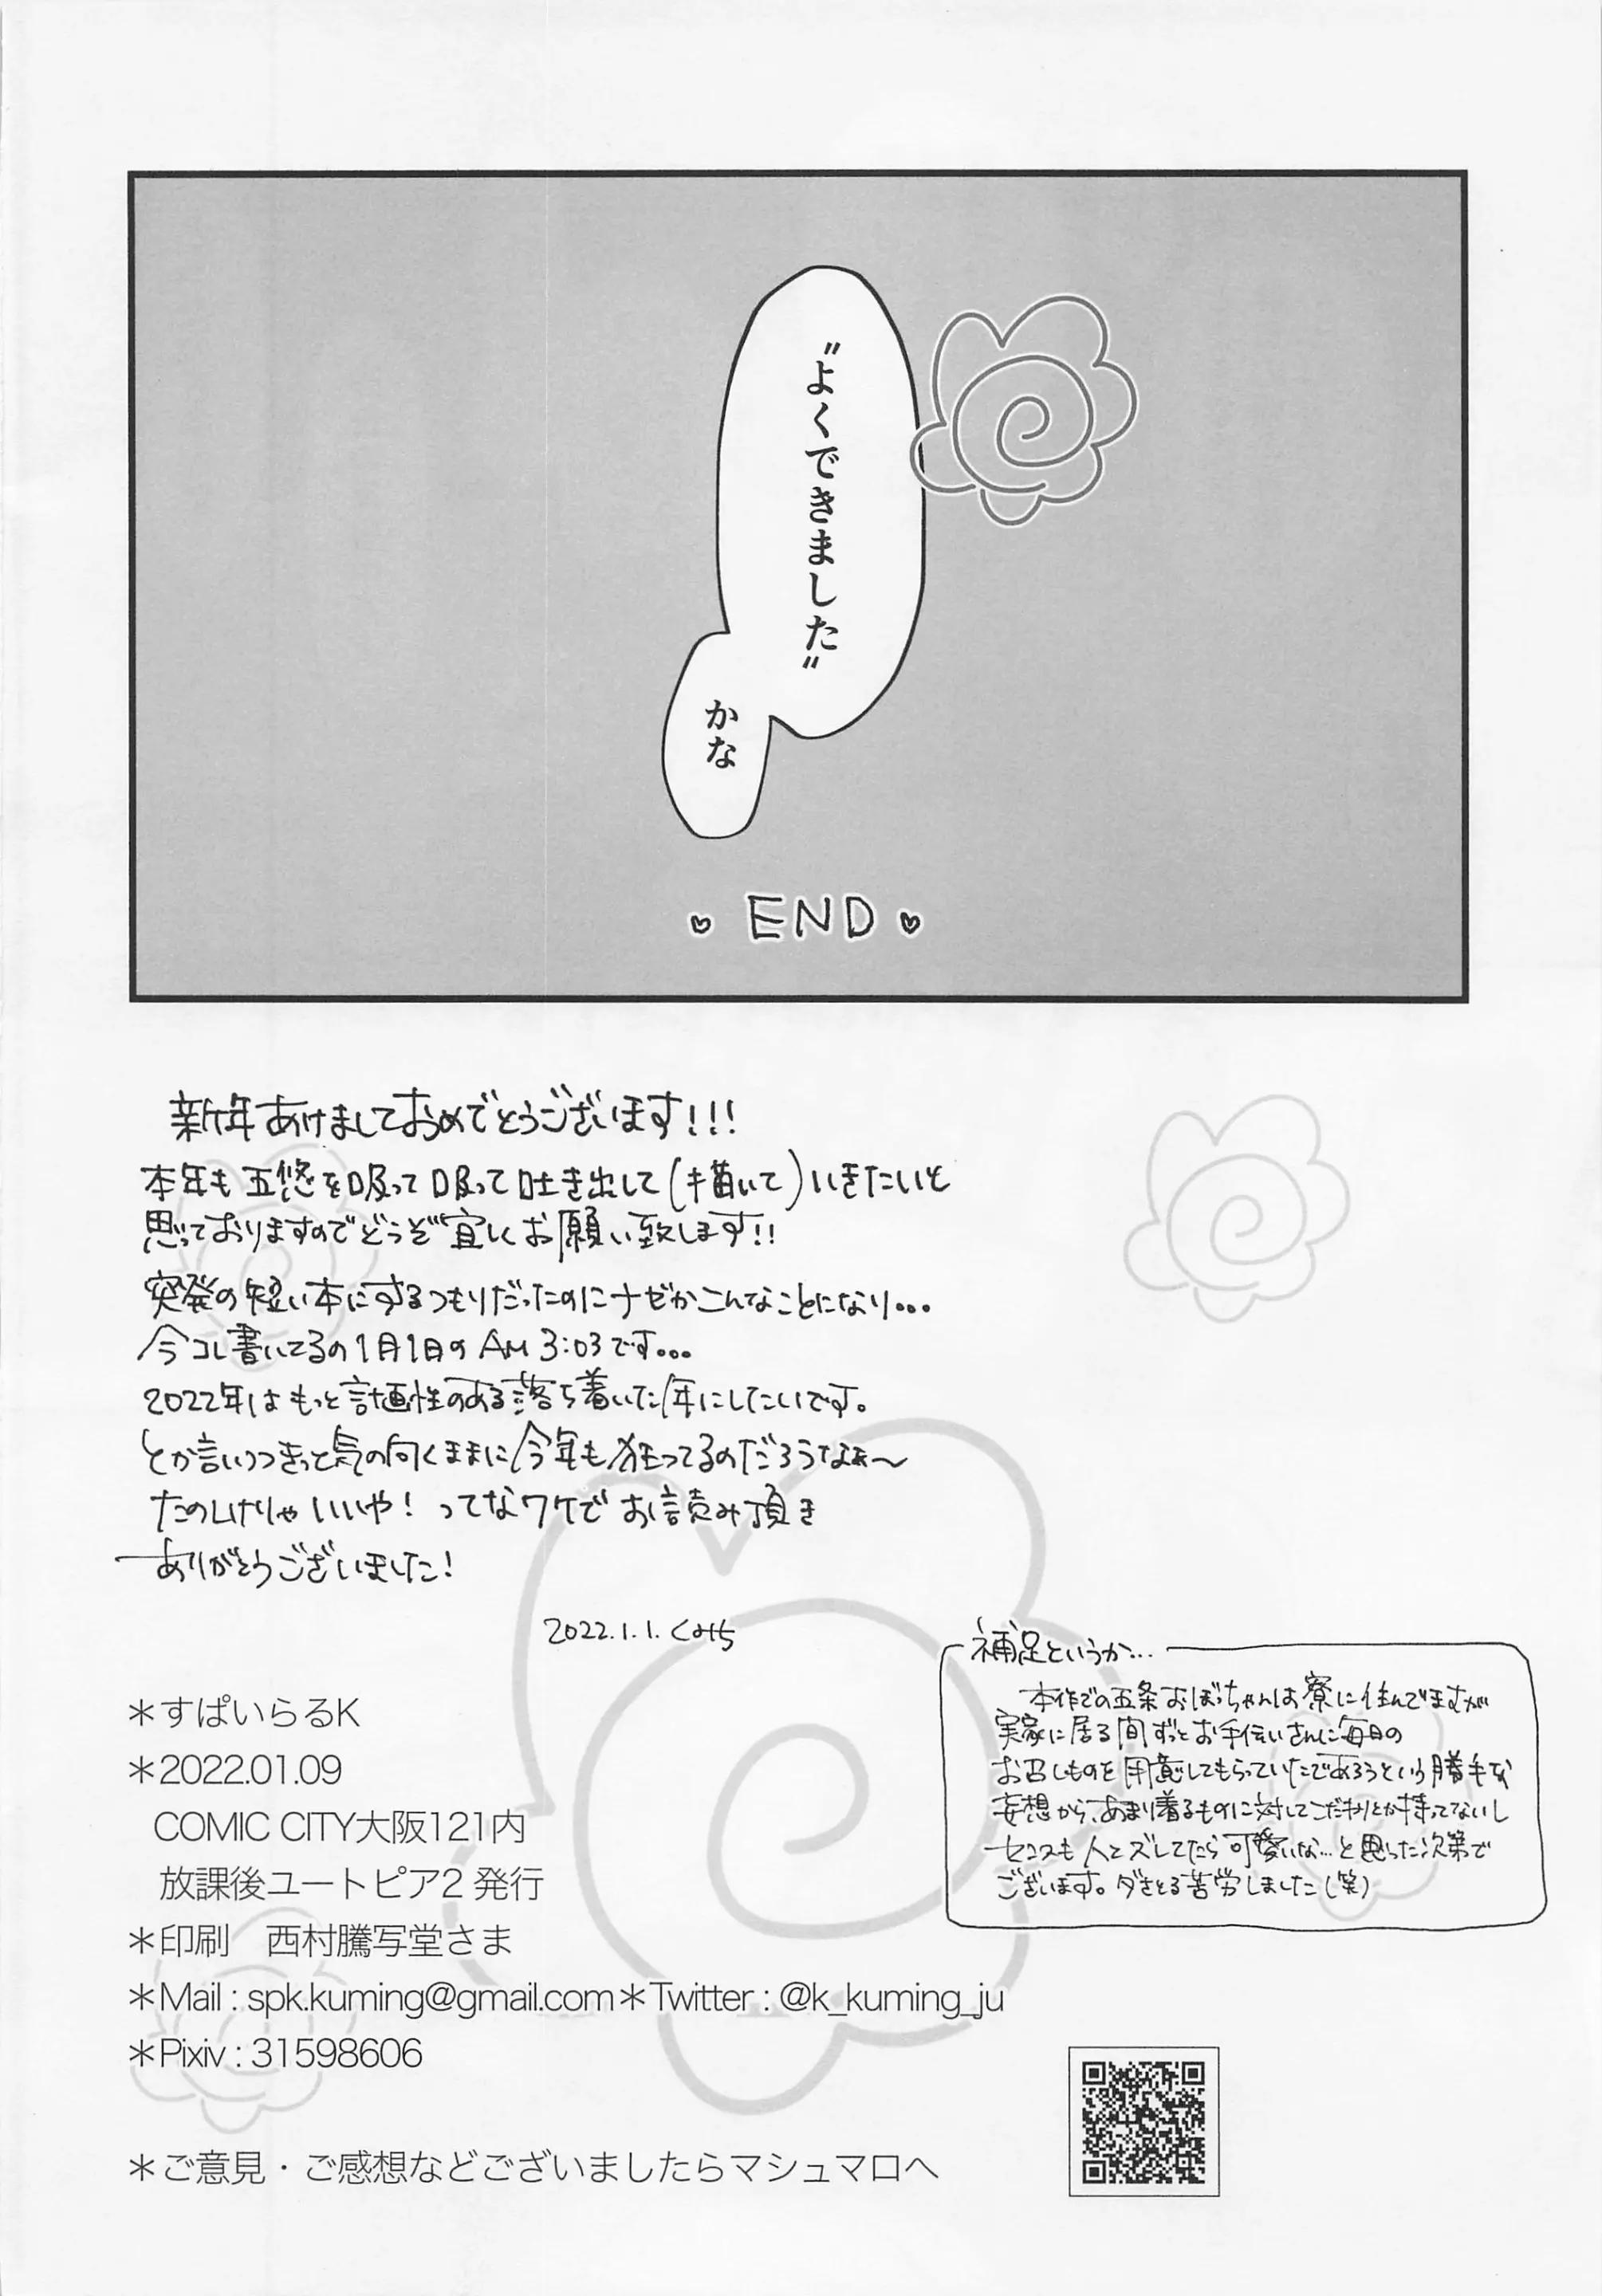 “よくできました”
かな
END
新年あけましておめでとうございます!!!
本年も五悠を吸って吸って吐き出して(描いて)いきたいと
思っておりますのでどうぞ宜しくお願い致します!!
突発の短い本にするつもりだったのにナゼかこんなことになり...
今コレ書いてるの1月1日のAM 3:03です...
2022年はもっと計画性のある落ち着いた年にしたいです。
とか言いつつきっと気の向くままに今年も狂ってるのだろうなぁ〜
たのしけりゃいいや! ってなワケでお読み頂き
ありがとうございました!
2022.1.1.くみち
補足というか...
本作での五条おぼっちゃんは寮に住んでますが
実家に居る間ずっとお手伝いさんに毎日の
お召しものを用意してもらっていたであろうという勝手な
妄想から、あまり着るものに対してこだわりとか持ってないし
センスも人とズレてたら可愛いな...と思った次第で
ございます。ダサとる苦労しました(笑)
＊すぱいらるK
＊2022.01.09
COMIC CITY大阪121内
放課後ユートピア2 発行
＊印刷　西村謄写堂さま
＊Mail : spk.kuming@gmail.com＊Twitter : @k_kuming_ju
＊Pixiv : 31598606
＊ご意見・ご感想などございましたらマシュマロへ